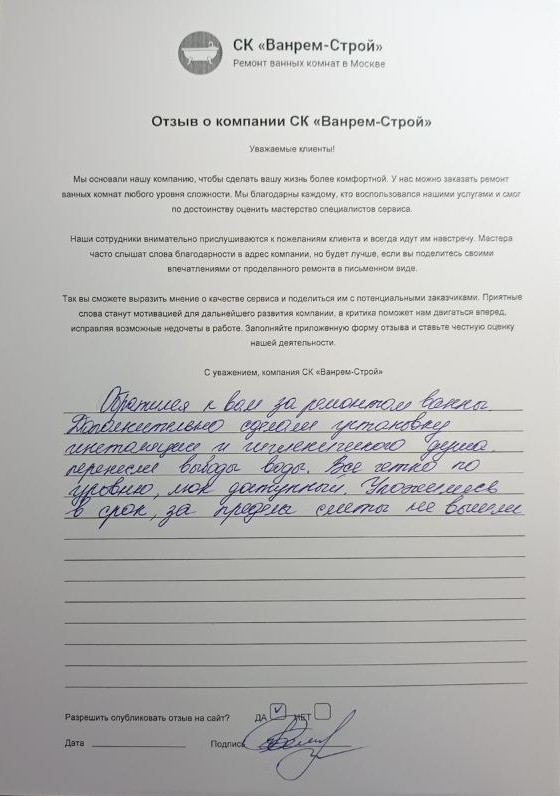 СК «Ванрем-Строй»
Ремонт ванных комнат в Москве
Отзыв о компании СК «Ванрем-Строй»
Уважаемые клиенты!
Мы основали нашу компанию, чтобы сделать вашу жизнь более комфортной. У нас можно заказать ремонт
ванных комнат любого уровня сложности. Мы благодарны каждому, кто воспользовался нашими услугами и смог
по достоинству оценить мастерство специалистов сервиса.
Наши сотрудники внимательно прислушиваются к пожеланиям клиента и всегда идут им навстречу. Мастера
часто слышат слова благодарности в адрес компании, но будет лучше, если вы поделитесь своими
впечатлениями от проделанного ремонта в письменном виде.
Так вы сможете выразить мнение о качестве сервиса и поделиться им с потенциальными заказчиками. Приятные
слова станут мотивацией для дальнейшего развития компании, а критика поможет нам двигаться вперед,
исправляя возможные недочеты в работе. Заполняйте приложенную форму отзыва и ставьте честную оценку
нашей деятельности.
С уважением, компания СК «Ванрем-Строй»
Обратился к вам за ремонтом ванны.
Дополнительно сделали установку
инсталяции и гигиенического душа,
перенесли выводы воды. Все четко по
уровню, люк доступный. Уложились
в срок, за пределы сметы не вышли
Разрешить опубликовать отзыв на сайт? ДА НЕТ
Дата Подпись